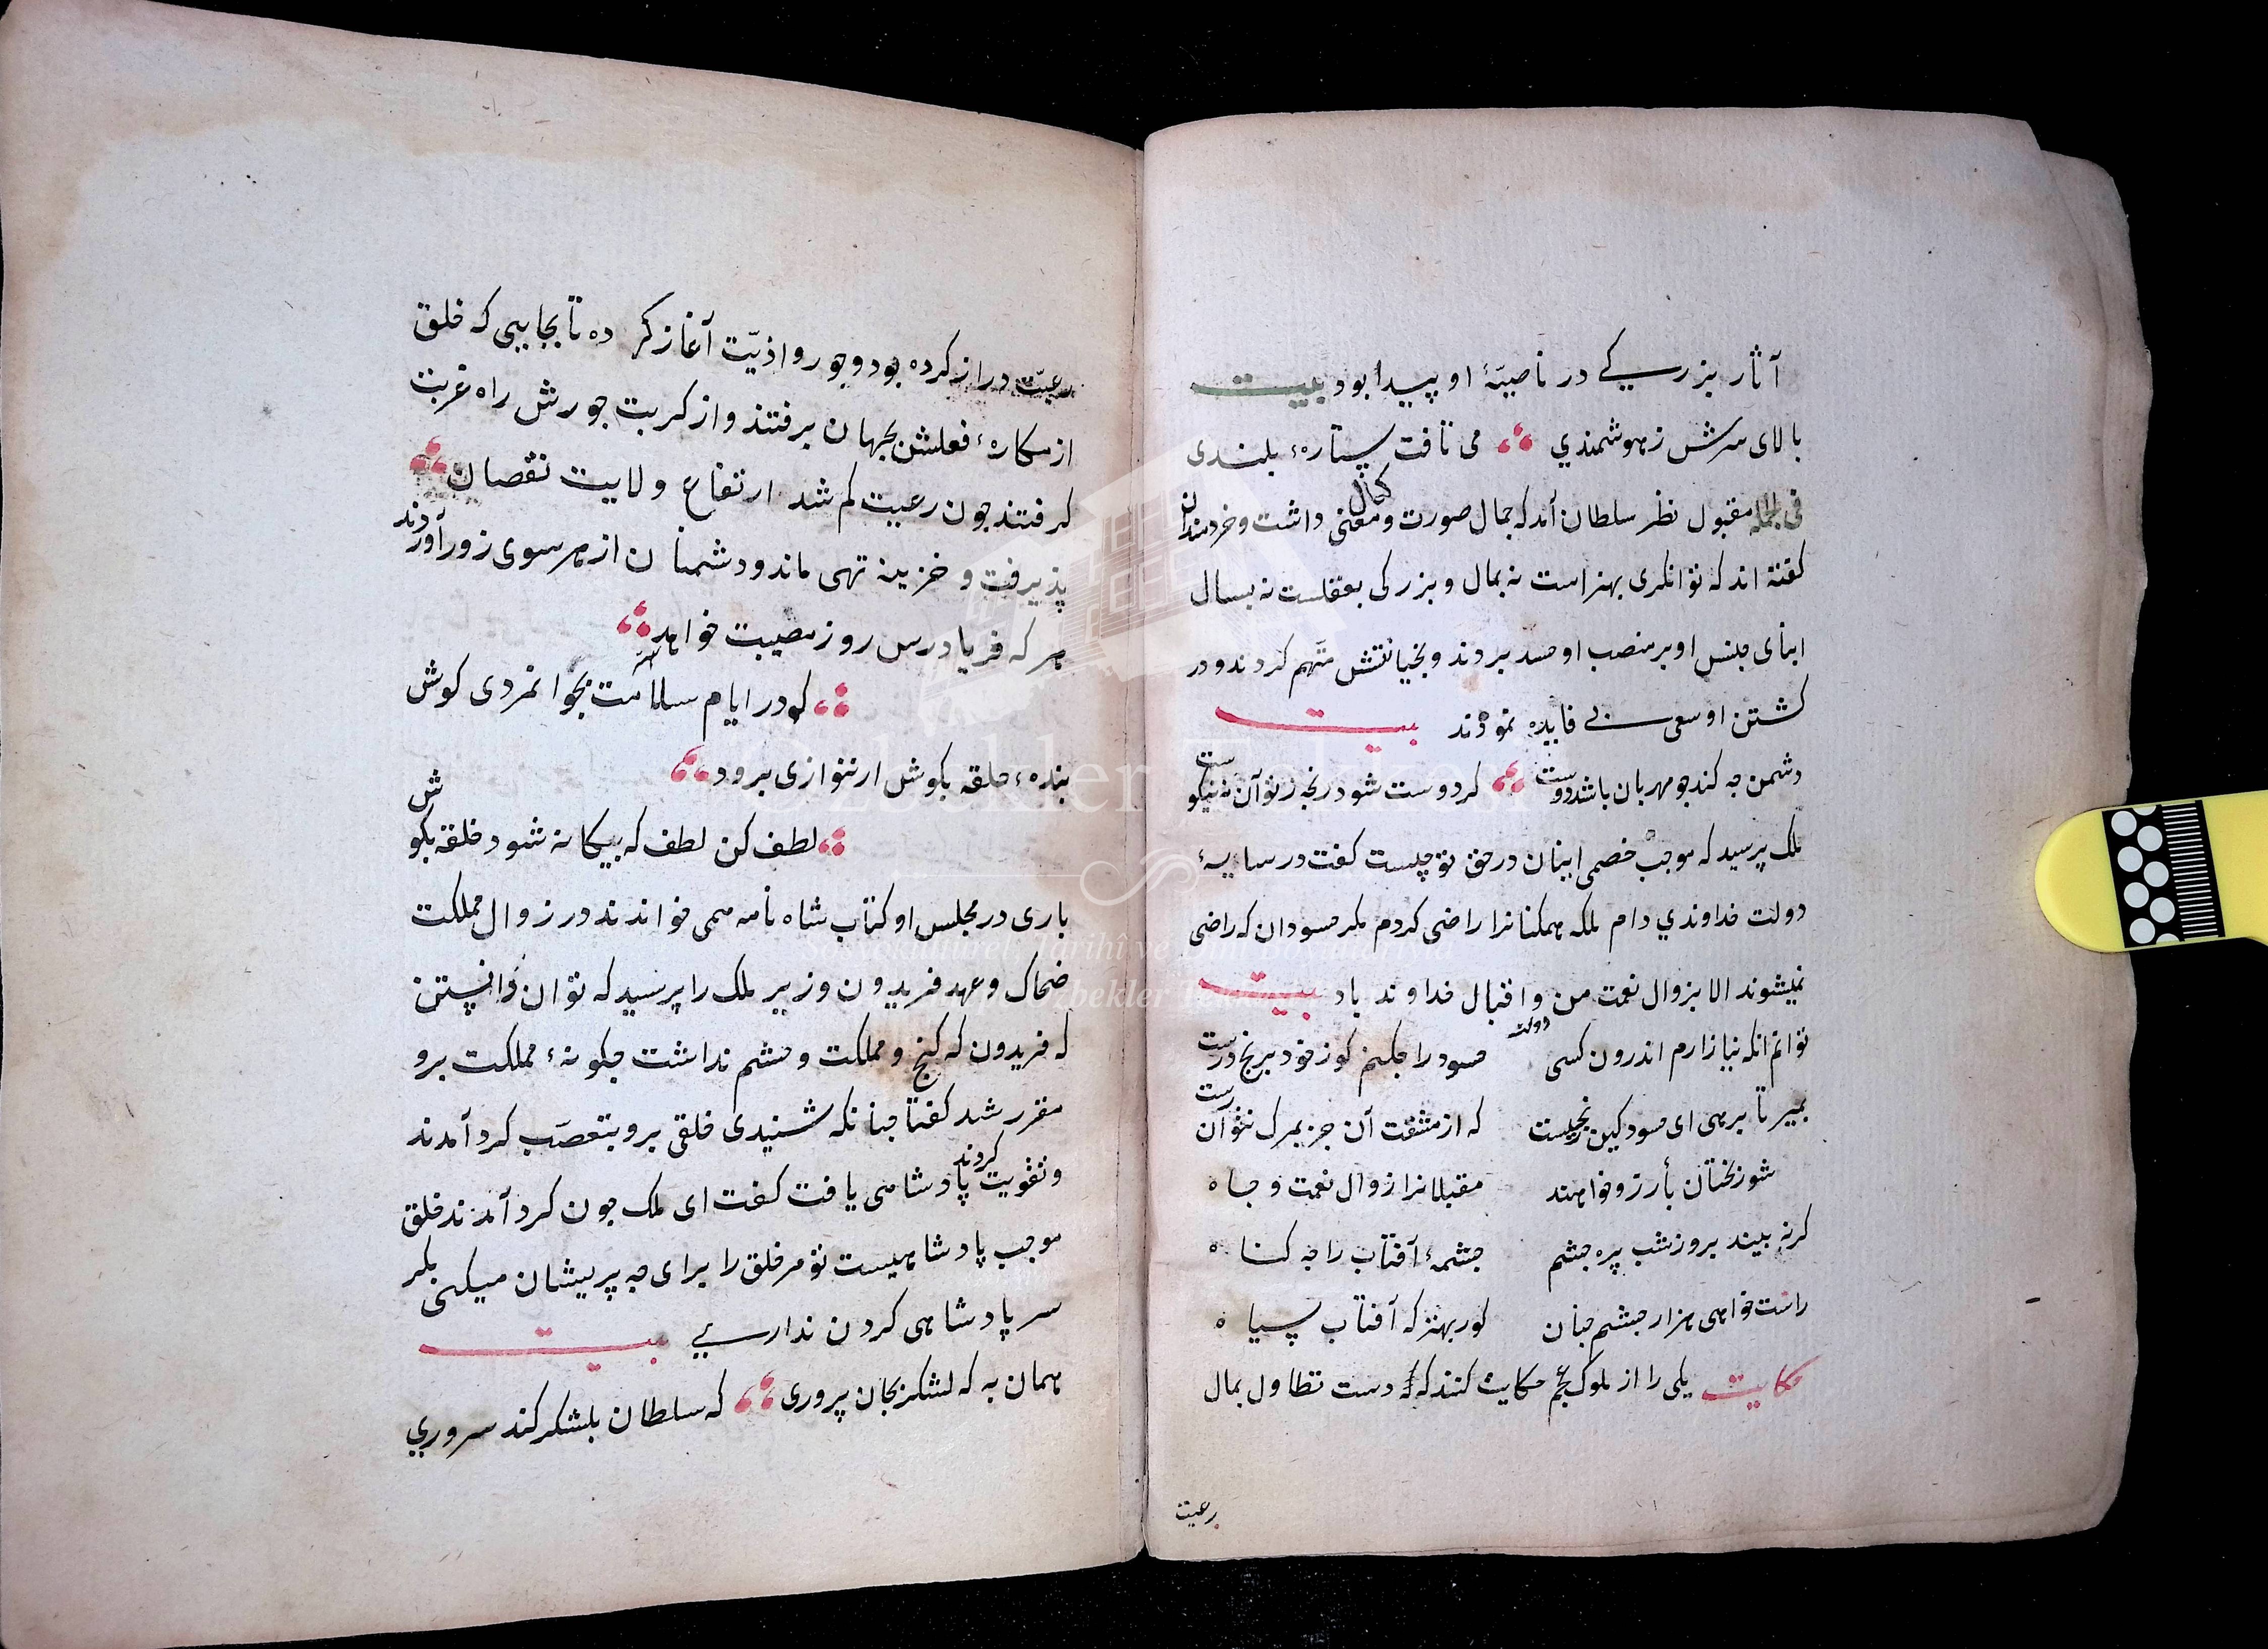 آثار بزرگے در ناصیۀ او پیدا بود بیت
بالای سرش ز هوشمندي می تافت ستارهٔ بلندی
فی الجمله مقبول نظر سلطان آمد که جمال صورت و کمال معنی داشت و خردمندان
کفته اند که توانکری بهنر است نه بمال و بزرکی بعقلست نه بسال
ابنای جنس او بر منصب او حسد بردند و بخیانتش متّهم کردند و در
کشتن او سعی بے فایده نمودند بیت
دشمن جه کند جو مهربان باشد دوست
ملک پرسید که موجب خصمی اینان در حق تو چیست کفت در سایهٔ
دولت خداوندي دام ملکه همکنانرا راضی کردم مکر حسودان که راضی
نمیشوند الا بزوال نعمت من و دولت و اقبال خداوند باد بیت
توانم انکه نیازارم اندرون کسی حسود را جکنم کو ز خود برنج درست
بمیر تا برهی ای حسود کین رنجیست که از مشقت آن جز بمرک نتوان رست
شوربختان بآرزو خواهند مقبلانرا زوال نعمت و جاه
کر نه بیند بروز شب پره جشم جشمۀ آفتاب را جه کناه
راست خواهی هزار جشم جنان کور بهتر که آفتاب سیاه
حکایت یکی را از ملوک عجم حکایت کنند که دست تطاول بمال
رعیت
رعیّت دراز کرده بود و جور و اذیّت آغاز کرده تا بجایی که خلق
از مکارهٔ فعلش بجهان برفتند و از کربت جورش راه غربت
کرفتند جون رعیت کم شد ارتفاع ولایت نقصان
پذیرفت و خزینه تهی ماند و دشمنان از هر سوی زور آوردند
هر که فریادرس روز مصیبت خواهد
کو در ایام سلامت بجوانمردی کوش
بندهٔ حلقه بکوش ار ننوازی برود
لطف کن لطف که بیکانه شود حلقه بکوش
باری در مجلس او کتاب شاه نامه همی خواندند در زوال مملکت
ضحاک و عهد فریدون وزیر ملک را پرسید که توان دانستن
که فریدون که کنج و مملکت و حشم نداشت جکونهٔ مملکت برو
مقرر شد کفتا جنانکه شنیدی خلقی برو بتعصّب کرد آمدند
و تقویت کردند پادشاهی یافت کفت ای ملک جون کرد آمدند خلق
موجب پادشاهیست تو مر خلق را برای جه پریشان میکنی مکر
سر پادشاهی کردن ندارے بیت
همان به که لشکر بجان پروری که سلطان بلشکر کند سروري